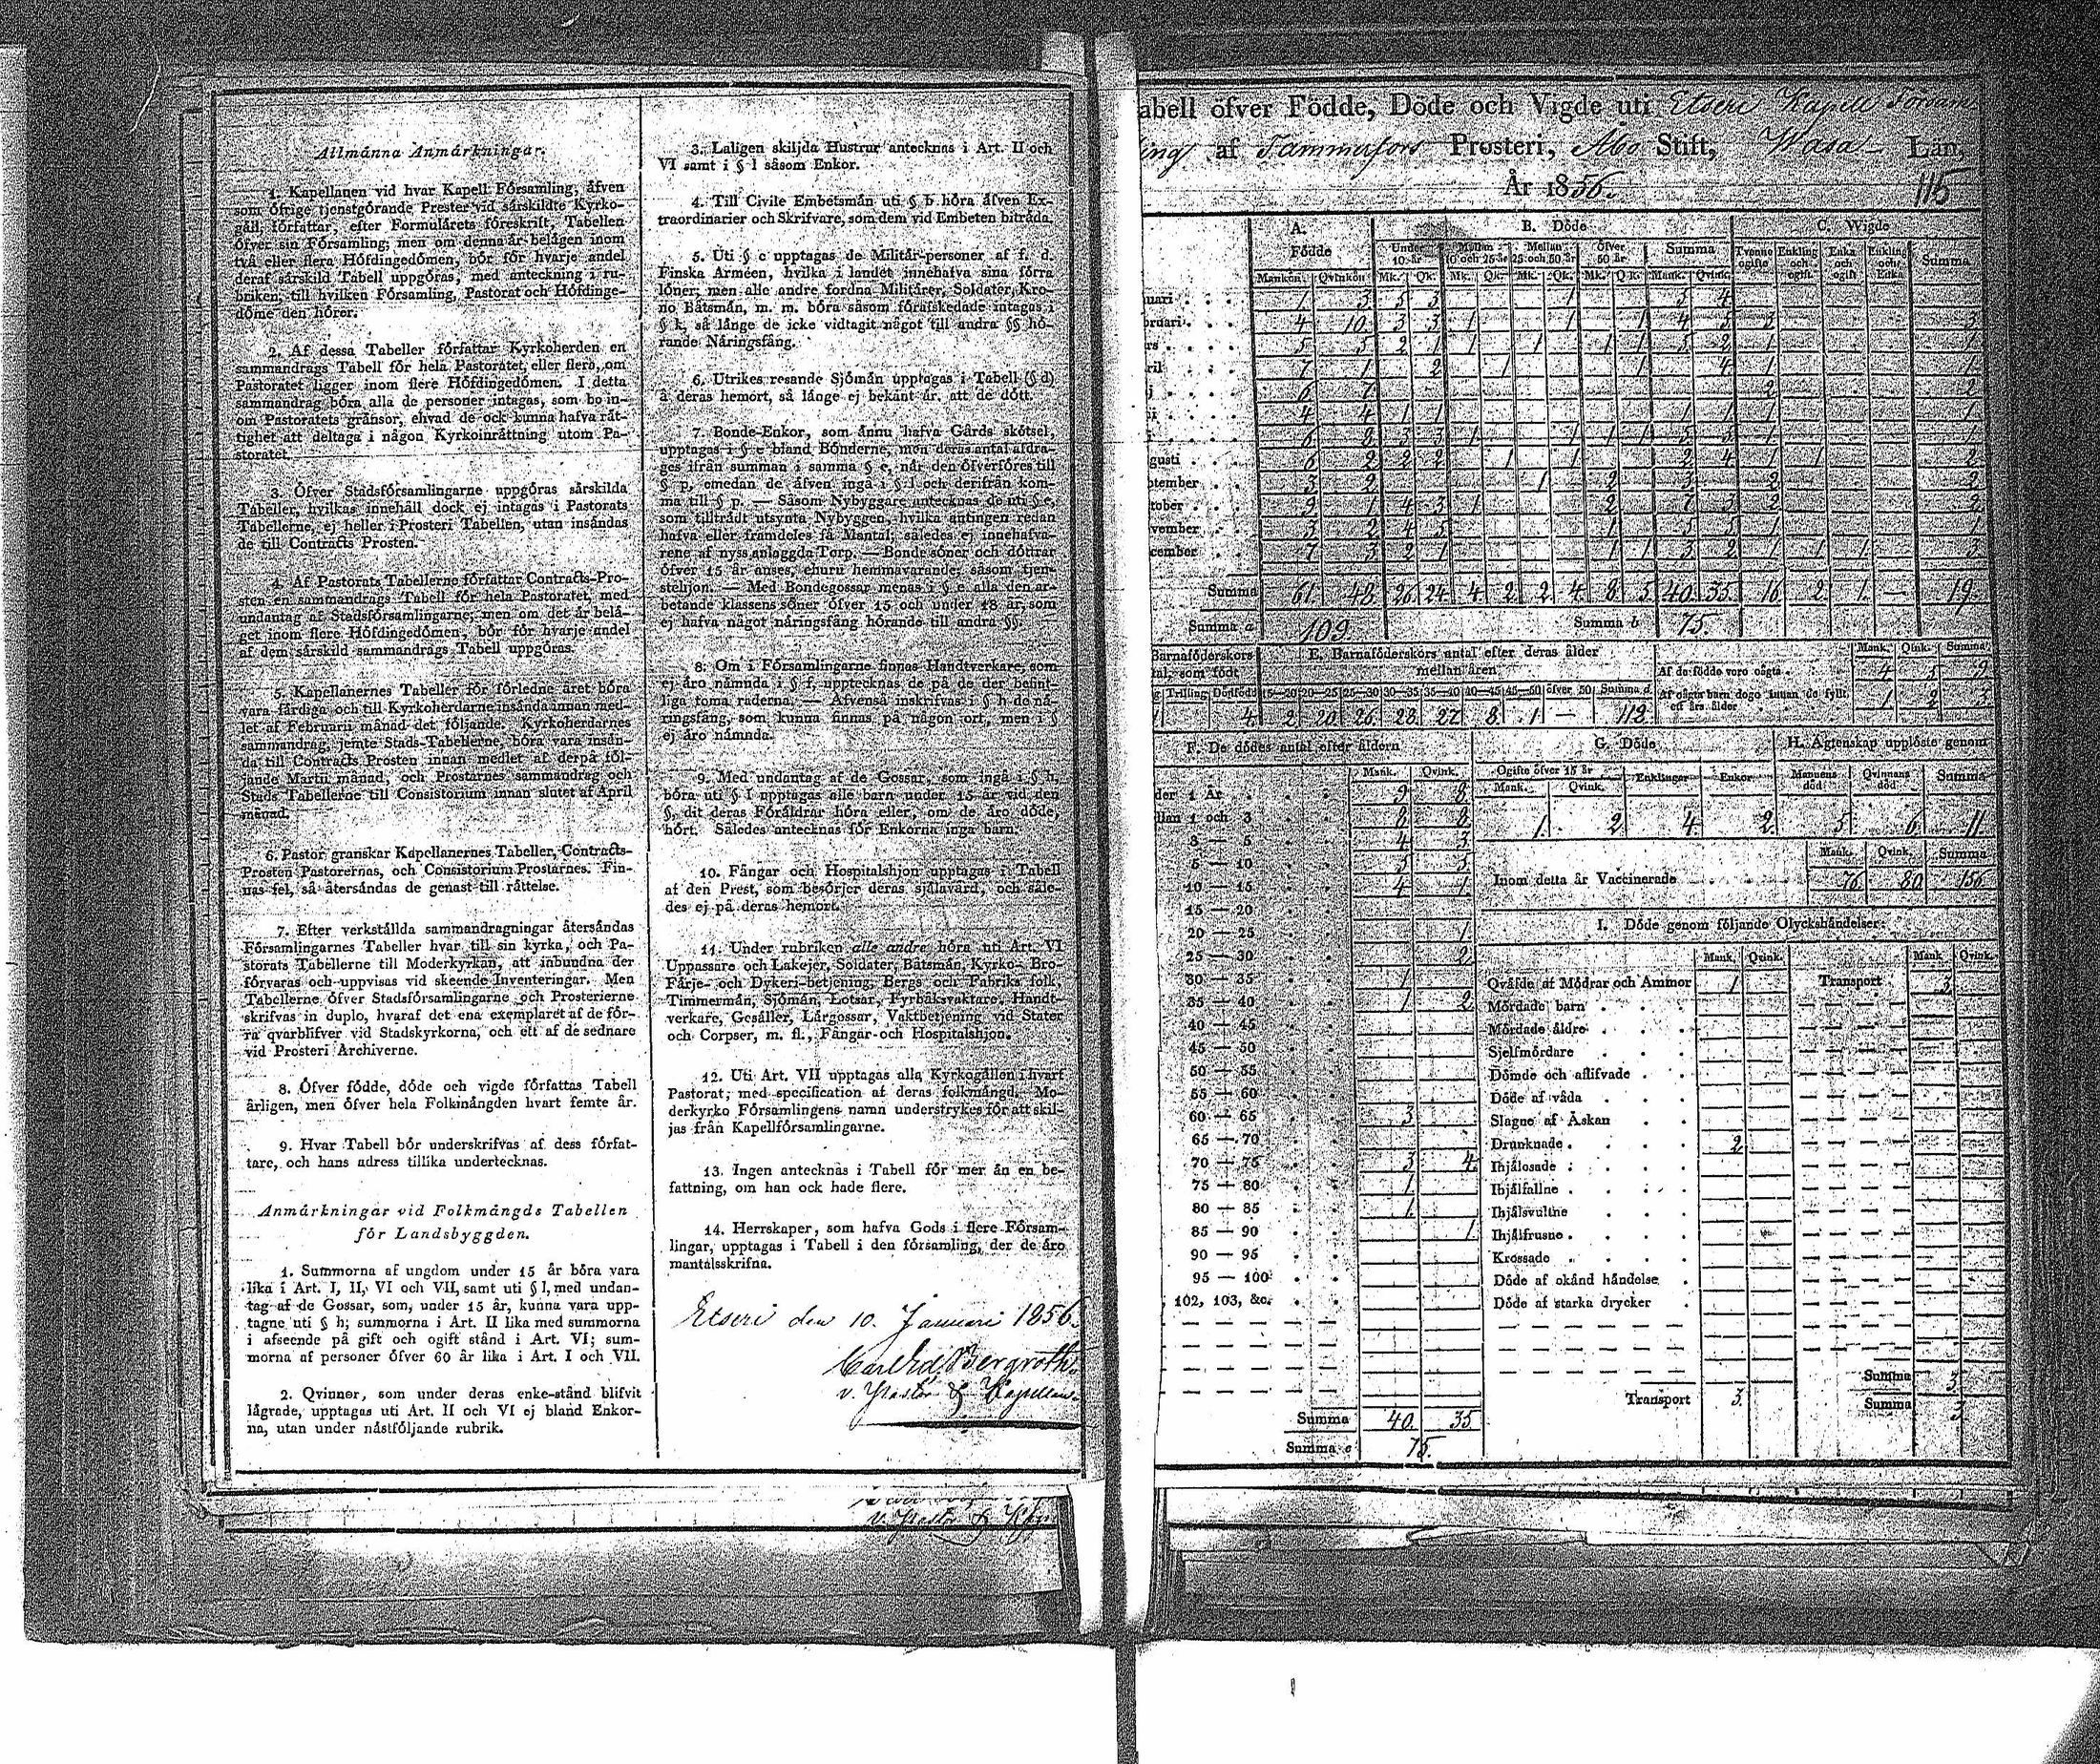 Allmänna Anmärkningar.
1. Kapellanen vid hvar Kapell Församling, äfven
som öfrige tjenstgörande Prester vid särskildte Kyrko-
gäll, författar, efter Formulärets föreskrift, Tabellen
öfver sin Församling; men om denna är belägen inom
två eller flera Höfdingedömen, bör för hvarje andel
deraf särskild Tabell uppgöras, med anteckning i ru-
briken, till hvilken Församling, Pastorat och Höfdinge-
döme den hörer.
2. Af dessa Tabeller författar Kyrkoherden en
sammandrags Tabell för hela Pastoratet, eller flera, om
Pastoratet ligger inom flere Höfdingedömen. I detta
sammandrag böra alla de personer intagas, som bo in-
om Pastoratets gränsor, ehvad de ock kunna hafva rät-
tighet att deltaga i någon Kyrkoinrättning utom Pa-
storatet.
3. Öfver Stadsförsamlingarne uppgöras särskilda
Tabeller, hvilkas innehåll dock ej intagas i Pastorats
Tabellerne, ej heller i Prosteri Tabellen, utan insändas
de till Contracts Prosten.
4. Af Pastorats Tabellerne författar Contracts-Pro-
sten en sammandrags Tabell för hela Pastoratet, med
undantag af Stadsförsamlingarne; men om det är belä-
get inom flere Höfdingedömen, bör för hvarje andel
af dem särskild sammandrags Tabell uppgöras.
5. Kapellanernes Tabeller för förledne året böra
vara färdiga och till Kyrkoherdarne insända innan med-
let af Februarii månad det följande. Kyrkoherdarnes
sammandrag, jemte Stads-Tabellerne, böra vara insän-
da till Contracts Prosten innan medlet af derpå föl-
jande Martii månad, och Prostarnes sammandrag och
Stads Tabellerne till Consistorium innan slutet af April
månad.
6. Pastor granskar Kapellanernes Tabeller, Contracts-
Prosten Pastorernas, och Consistorium Prostarnes. Fin-
nas fel, så återsändas de genast till rättelse.
7. Efter verkställda sammandragningar återsändas
Församlingarnes Tabeller hvar till sin kyrka, och Pa-
storats Tabellerne till Moderkyrkan, att inbundna der
förvaras och uppvisas vid skeende Inventeringar. Men
Tabellerne öfver Stadsförsamlingarne och Prosterierne
skrifvas in duplo, hvaraf det ena exemplaret af de för-
ra qvarblifver vid Stadskyrkorna, och ett af de sednare
vid Prosteri Archiverne.
8. Öfver födde, döde och vigde författas Tabell
årligen, men öfver hela Folkmängden hvart femte år.
9. Hvar Tabell bör underskrifvas af dess förfat-
tare, och hans adress tillika undertecknas.
Anmärkningar vid Folkmängds Tabellen
för Landsbyggden.
1. Summorna af ungdom under 15 år böra vara
lika i Art. I, II, VI och VII, samt uti § l, med undan-
tag af de Gossar, som, under 15 år, kunna vara upp-
tagne uti § h; summorna i Art. II lika med summorna
i afseende på gift och ogift stånd i Art. VI; sum-
morna af personer öfver 60 år lika i Art. I och VII.
2. Qvinnor, som under deras enke-stånd blifvit
lägrade, upptagas uti Art. II och VI ej bland Enkor-
na, utan under nästföljande rubrik.
3. Laligen skiljda Hustrur antecknas i Art. II och
VI samt i § l såsom Enkor.
4. Till Civile Embetsmän uti § b höra äfven Ex-
traordinarier och Skrifvare, som dem vid Embeten biträda.
5. Uti § c upptagas de Militär-personer af f. d.
Finska Arméen, hvilka i landet innehafva sina förra
löner; men alle andre fordna Militärer, Soldater, Kro-
no Båtsmän, m. m. böra såsom förafskedade intagas i
§ k, så länge de icke vidtagit något till andra §§ hö-
rande Näringsfång.
6. Utrikes resande Sjömän upptagas i Tabell (§ d)
å deras hemort, så länge ej bekant är, att de dött.
7. Bonde-Enkor, som ännu hafva Gårds skötsel,
upptagas i § e bland Bönderne, men deras antal afdra-
ges ifrån summan i samma § e, när den öfverföres till
§ p, emedan de äfven ingå i § l och derifrån kom-
ma till § p. — Såsom Nybyggare antecknas de uti § e,
som tillträdt utsynta Nybyggen, hvilka antingen redan
hafva eller framdeles få Mantal; således ej innehafva-
rene af nyss anlaggda Torp. — Bonde söner och döttrar
öfver 15 år anses, ehuru hemmavarande, såsom tjen-
stehjon. — Med Bondegossar menas i § e alla den ar-
betande klassens söner öfver 15 och under 18 år, som
ej hafva något näringsfång hörande till andra §§.
8. Om i Församlingarne finnas Handtverkare, som
ej äro nämnda i § f, upptecknas de på de der befint-
liga toma raderna. — Äfvenså inskrifvas i § h de nä-
ringsfång, som kunna finnas på någon ort, men i §
ej äro nämnda.
9. Med undantag af de Gossar, som ingå i § h,
böra uti § l upptagas alle barn under 15 år vid den
§, dit deras Föräldrar höra eller, om de äro döde,
hört. Således antecknas för Enkorna inga barn.
10. Fångar och Hospitalshjon upptagas i Tabell
af den Prest, som besörjer deras själavård, och såle-
des ej på deras hemort.
11. Under rubriken alle andre höra uti Art. VI
Uppassare och Lakejer, Soldater, Båtsmän, Kyrko- Bro-
Färje- och Dykeri-betjening, Bergs och Fabriks folk,
Timmermän, Sjömän, Lotsar, Fyrbåksvaktare, Handt-
verkare, Gesäller, Lärgossar, Vaktbetjening vid Stater
och Corpser, m. fl., Fångar och Hospitalshjon.
12. Uti Art. VII upptagas alla Kyrkogällen i hvart
Pastorat, med specification af deras folkmängd. Mo-
derkyrko Församlingens namn understrykes för att skil-
jas från Kapellförsamlingarne.
13. Ingen antecknas i Tabell för mer än en be-
fattning, om han ock hade flere.
14. Herrskaper, som hafva Gods i flere Försam-
lingar, upptagas i Tabell i den församling, der de äro
mantalsskrifna.
Etseri den 10. Januari 1856.
Bergroth.
v. Pastor & Kapellan.
abell öfver Födde, Döde och Vigde uti Etseri Kapell Försam
ling af Tammerfors Prosteri, Åbo Stift, Wasa Län,
År 1856. 115
A. Födde B. Döde C. Wigde
Under 10 år Mellan 10 och 25 år Mellan 25 och 50 år Öfver 50 år Summa Tvenne ogifte Enkling och ogift Enka och ogift Enkling och Enka Summa
Mankön Qvinkön Mk. Qk. Mk. Qk. Mk. Qk. Mk. Qk. Mank. Qvink.
uari 1 3 3 3 1 3 4
bruari 4 10 3 3 1 1 1 4 5 3 3
rs 5 5 2 1 1 1 1 1 5 2 1 1
ril 7 1 2 1 1 4 1 1
j 6 7 2 2
i 4 4 1 1 1 1 1 1
i 6 8 3 3 1 1 1 1 5 5 1 1
gusti 6 2 2 2 1 1 2 4 1 1 2
ptember 3 2 1 2 3 2 2
tober 9 1 4 3 1 2 7 3 2 2
vember 3 2 4 5 1 5 5 1 1
cember 7 3 2 1 1 1 3 2 1 1 1 — 3
Summa 61. 48. 26. 24. 4 2 2 4 8 5 40. 35. 16 2 1. — 19.
Summa a 109 Summa b 75.
Barnaföderskors
tal, som födt
E. Barnaföderskors antal efter deras ålder
mellan åren
Trilling Dödfödt 15—20 20—25 25—30 30—35 35—40 40—45 45—50 öfver 50 Summa d.
4. 2. 20. 26. 28. 27. 8. 1 — 112.
Mank. Qink. Summa
Af de födde voro oägta 4 5 9
Af oägta barn dogo innan de fyllt
ett års ålder 1 2 3
F. De dödes antal efter åldern
Mank. Qvink.
der 1 År 9 8
llan 1 och 3 8 8
3 — 5 4 3
5 — 10 5 5
10 — 15 4 1
15 — 20
20 — 25 1.
25 — 30 2
30 — 35 1
35 — 40 1 2
40 — 45
45 — 50
50 — 55
55 — 60
60 — 65 3
65 — 70
70 — 75 3 4.
75 — 80 1.
80 — 85 1.
85 — 90 1.
90 — 95
95 — 100
102, 103, &c.
Summa 40. 35
Summa e 75.
G. Döde
Ogifte öfver 15 år Enklingar Enkor
Mank. Qvink.
1. 2 4. 2.
H. Ägtenskap upplöste genom
Mannens död Qvinnans död Summa
5 6 11
Mank. Qvink. Summa
Inom detta år Vaccinerade 76 80 156
I. Döde genom följande Olyckshändelser:
Mank. Qvink. Mank. Qvink.
Qväfde af Mödrar och Ammor 1 Transport 3
Mördade barn
Mördade äldre
Sjelfmördare
Dömde och aflifvade
Döde af våda
Slagne af Åskan
Drunknade 2
Ihjälosade
Ihjälfallne
Ihjälsvultne
Ihjälfrusne
Krossade
Döde af okänd händelse
Döde af starka drycker
Transport 3.
Summa 3.
Summa 3
v. Pastor &